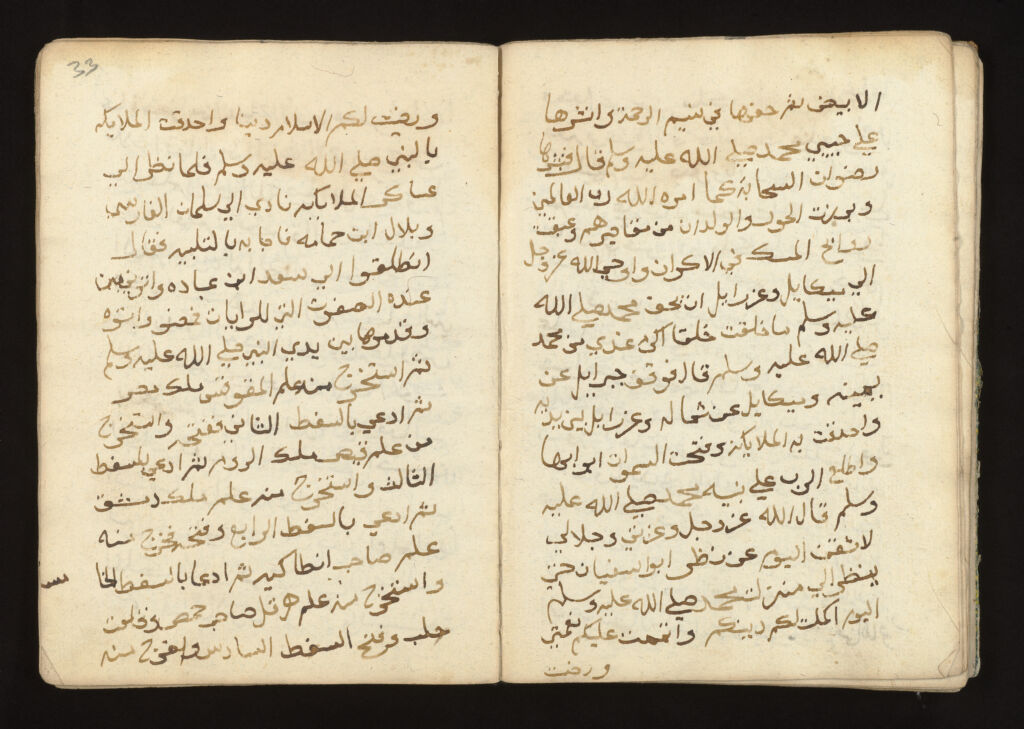 الابيض ثم حفوها في نسيم الرحمة وانثرها
علي حبيبي محمد صلي الله عليه وسلم قال
رضوان السحابة كما امره الله رب العالمين
وبرزت الحور والولدان من مقاصرهم وعبقت
روايح المسك في الاكوان واوحي الله عز وجل
الي ميكايل وعزرايل ان بحق محمد صلي الله
عليه وسلم ما خلقت خلقا اكرم عندي من محمد
صلي الله عليه وسلم قال فوقف جبرايل عن
يمينه وميكايل عن شماله وعزرايل بين يديه
واحدقت به الملايكة وفتحت السموات ابوابها
واطلع الرب علي نبيه محمد صلي الله عليه
وسلم قال الله عز وجل وعزتي وجلالي
لا اليوم عن نظر ابو اسفيان حتي
ينظر الي منزلت محمد صلي الله عليه وسلم
اليوم اكملت لكم دينكم واتممت عليكم نعمتي
ورضت
33
ورضيت لكم الاسلام دينا واحدقت الملايكه
بالنبي صلي الله عليه وسلم فلما نظر الي
عساكر الملايكه نادي الي سلمان الفارسي
وبلال ابن حمامه فاجابه بالتلبيه فقال
انطلقوا الي سعد ابن عباده واتوني من
عنده الصفوت التي للرايات فمضو واتوه
وقدموها بين يدي النبي صلي الله عليه وسلم
ثم استخرج منه علم المقوقس ملك مصر
ثم ادعي بالسفط الثاني ففتحه واستخرج
من علم قيصر ملك الروم ثم ادعي بالسفط
الثالث واستخرج منه علم ملك دمشق
ثم ادعي بالسفط الرابع وفتحه فخرج منه
علم صاحب انطاكيه ثم ادعا بالسفط الخا
مس
واستخرج منه علم هرقل صاحب حمص
حلب وفتح السفط السادس منه